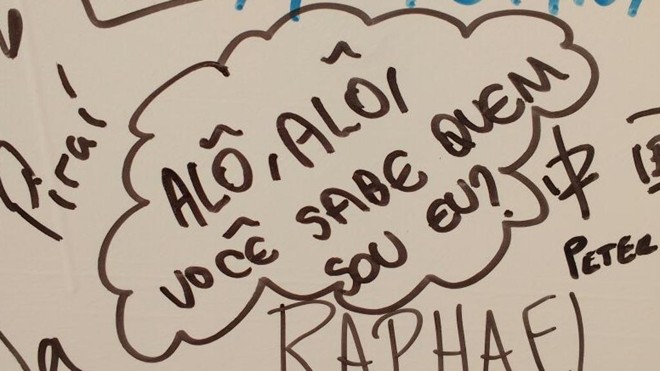 Piraí
ALÔ, ALÔ!
VOCÊ SABE QUEM
SOU EU?
PETER
RAPHAEL